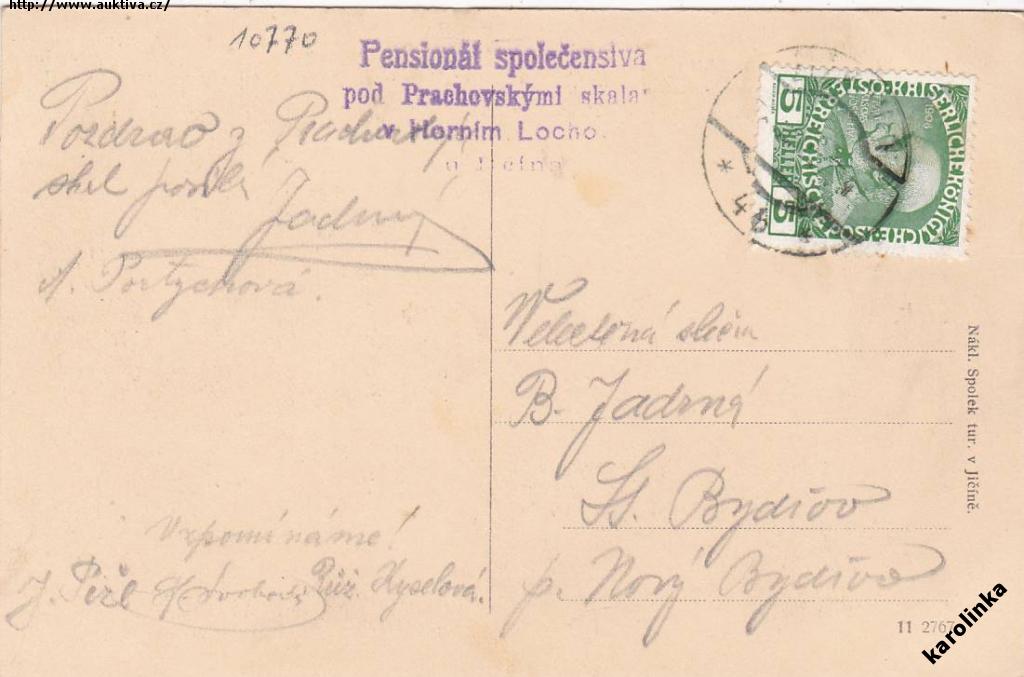 http://www.auktiva.cz/
10770
Pensionát společenstva
pod Prachovskými skalam
v Horním Locho
u Jičína
Pozdrav z Prachovský
skal posílá
Jadrný
A. Portychová.
Vzpomínáme!
J. Pižl Svoboda Růž. Kyselová.
5 HELLER 5
KAISERLICHE KÖNIGLICHE
ÖSTERREICHISCHE
1908
* 4b
slečna
B. Jadrná
St. Bydžov
p. Nový Bydžov
Nákl. Spolek tur. v Jičíně.
11 2767
karolinka